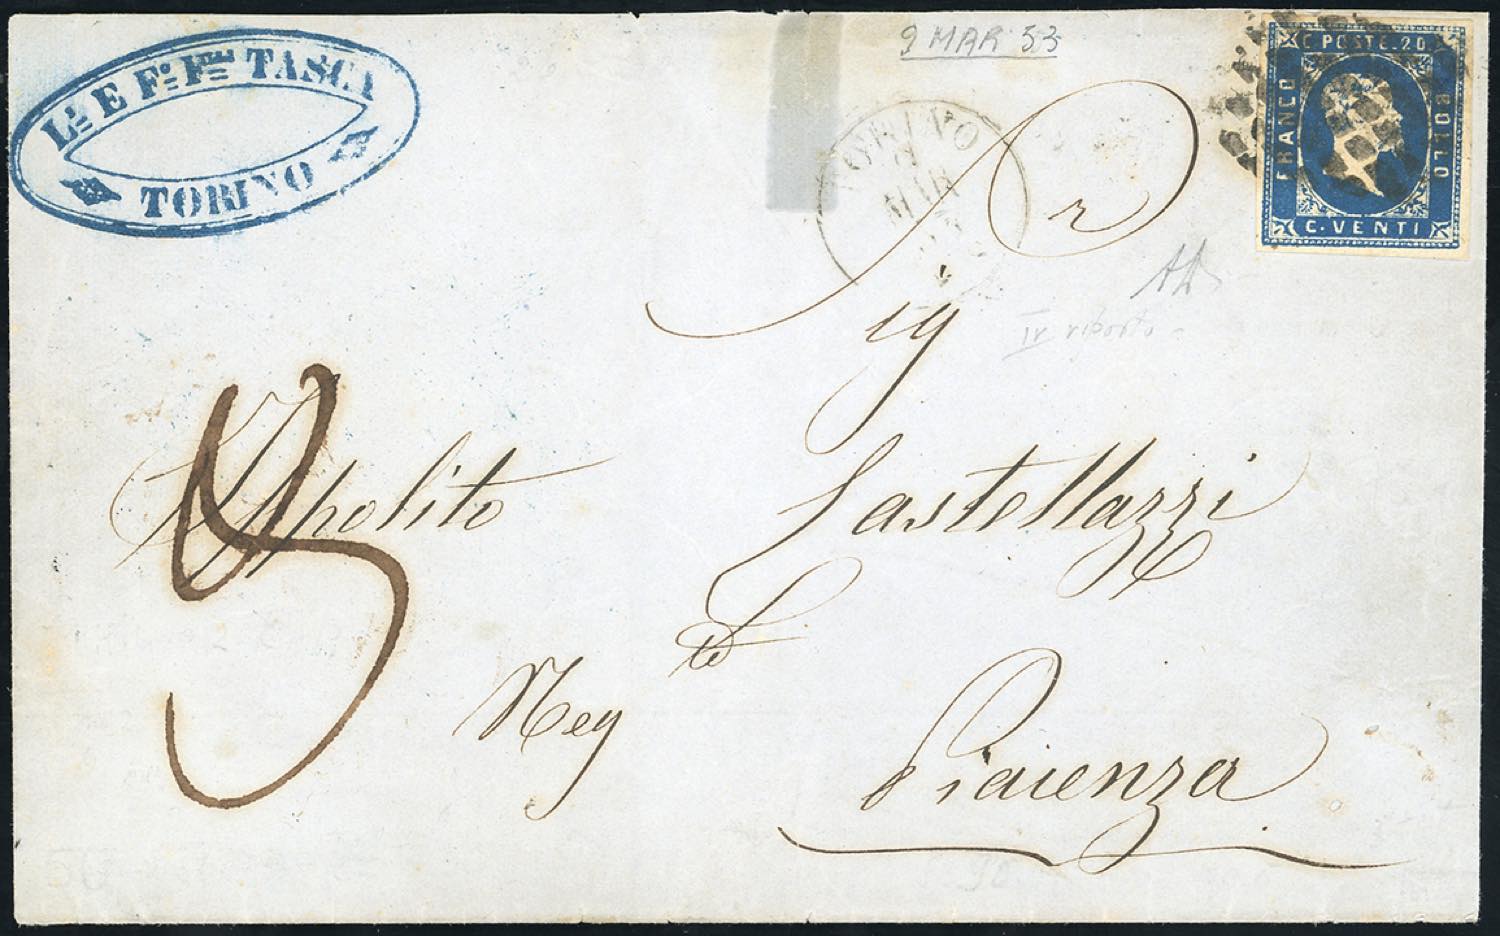 L.^i E F.^o F.^lli TASCA
TORINO
9 MAR 53
TORINO
9
MAR
53
C. POSTE. 20
FRANCO
BOLLO
C. VENTI
IV riporto
Sig^r
Ippolito Castellazzi
Neg^te
Piacenza
5